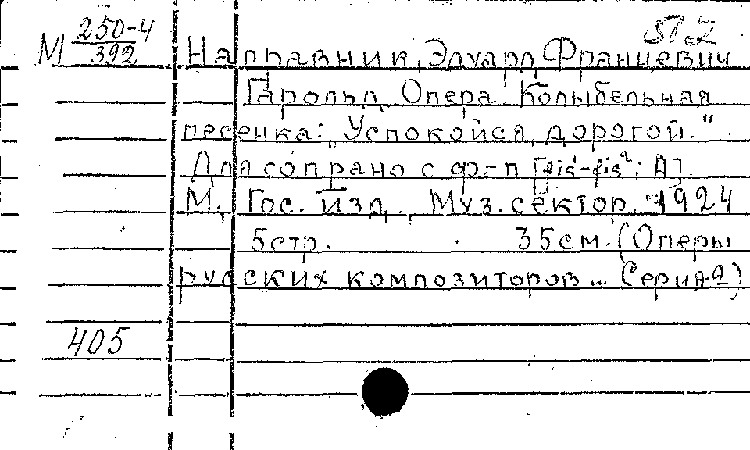 М 250-4/392
Направник, Эдуард Францевич
Гарольд. Опера. Колыбельная
песенка: „Успокойся, дорогой."
Для сопрано с ф-п [
М., Гос. изд., Муз. сектор. 1924
5 стр. 35 см. (Оперы
русских композиторов... Серия
405